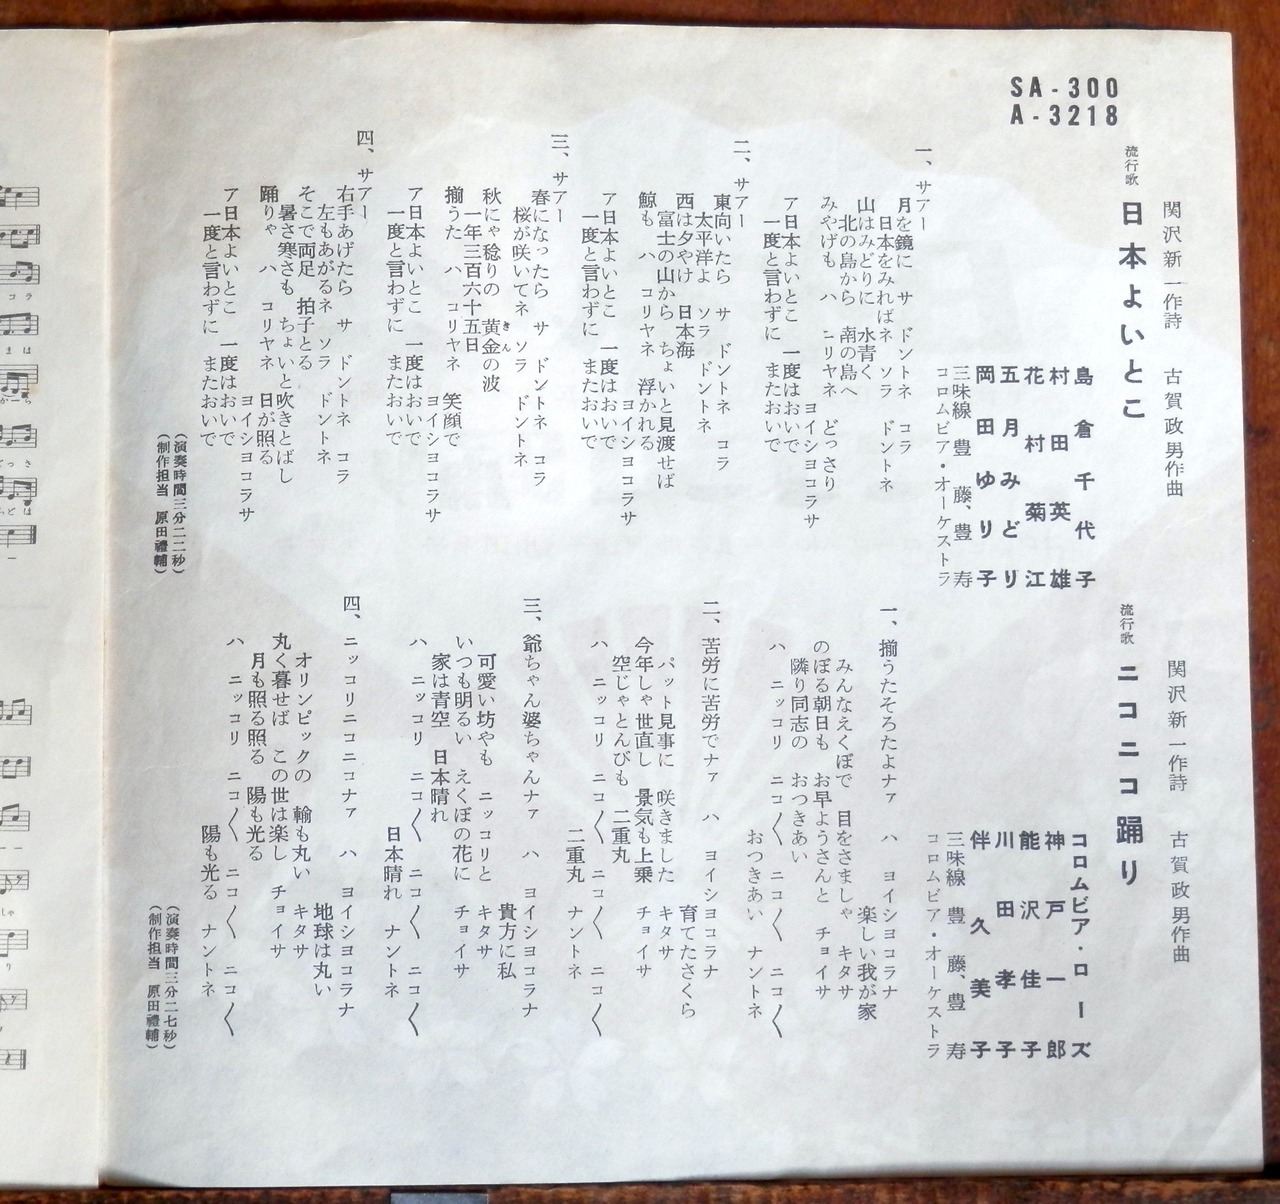 SA-300
A-3218
関沢新一作詩　古賀政男作曲
流行歌　日本よいとこ
島倉千代子
村田英雄
花村菊江
五月みどり
岡田ゆり子
三味線　豊藤、豊寿
コロムビア・オーケストラ
一、サアー
月を鏡に　サ　ドントネ　コラ
日本をみればネ　ソラ　ドントネ
山はみどりに　水青く
北の島から　南の島へ
みやげも　ハ　コリヤネ　どっさり
ヨイショコラサ
ア日本よいとこ　一度はおいで
一度と言わずに　またおいで
二、サアー
東向いたら　サ　ドントネ　コラ
太平洋よ　ソラ　ドントネ
西は夕やけ　日本海
富士の山から　ちょいと見渡せば
鯨も　ハ　コリヤネ　浮かれる
ヨイショコラサ
ア日本よいとこ　一度はおいで
一度と言わずに　またおいで
三、サアー
春になったら　サ　ドントネ　コラ
桜が咲いてネ　ソラ　ドントネ
秋にゃ稔りの　黄金の波
きん
一年三百六十五日
揃うた　ハ　コリヤネ　笑顔で
ヨイショコラサ
ア日本よいとこ　一度はおいで
一度と言わずに　またおいで
四、サアー
右手あげたら　サ　ドントネ　コラ
左もあがるネ　ソラ　ドントネ
そこで両足　拍子とる
暑さ寒さも　ちょいと吹きとばし
踊りゃ　ハ　コリヤネ　日が照る
ヨイショコラサ
ア日本よいとこ　一度はおいで
一度と言わずに　またおいで
（演奏時間三分二二秒）
（制作担当　原田禮輔）
関沢新一作詩　古賀政男作曲
流行歌　ニコニコ踊り
コロムビア・ローズ
神戸一郎
能沢佳子
川田孝子
伴久美子
三味線　豊藤、豊寿
コロムビア・オーケストラ
一、揃うたそろたよナァ　ハ　ヨイショコラナ
楽しい我が家
みんなえくぼで　目をさましゃ　キタサ
のぼる朝日も　お早ようさんと　チョイサ
隣り同志の　おつきあい
ハ　ニッコリ　ニコ〱　ニコ〱　ニコ〱
おつきあい　ナントネ
二、苦労に苦労でナァ　ハ　ヨイショコラナ
育てたさくら
パット見事に　咲きました　キタサ
今年しゃ世直し　景気も上乗　チョイサ
空じゃとんびも　二重丸
ハ　ニッコリ　ニコ〱　ニコ〱　ニコ〱
二重丸　ナントネ
三、爺ちゃん婆ちゃんナァ　ハ　ヨイショコラナ
貴方に私
可愛い坊やも　ニッコリと　キタサ
いつも明るい　えくぼの花に　チョイサ
家は青空　日本晴れ
ハ　ニッコリ　ニコ〱　ニコ〱　ニコ〱
日本晴れ　ナントネ
四、ニッコリニコニコナァ　ハ　ヨイショコラナ
地球は丸い
オリンピックの　輪も丸い　キタサ
丸く暮せば　この世は楽し　チョイサ
月も照る照る　陽も光る
ハ　ニッコリ　ニコ〱　ニコ〱　ニコ〱
陽も光る　ナントネ
（演奏時間三分二七秒）
（制作担当　原田禮輔）